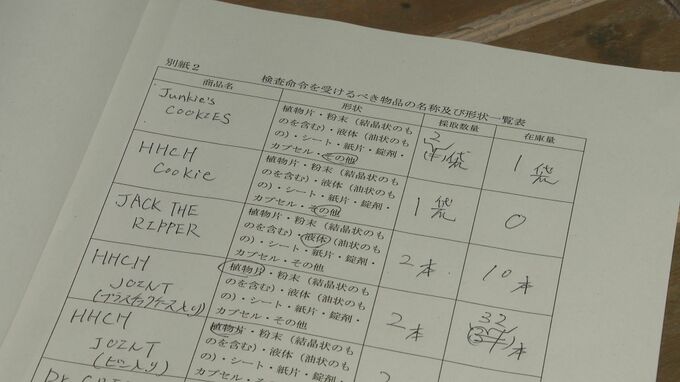 別紙2
検査命令を受けるべき物品の名称及び形状一覧表
商品名 形状 採取数量 在庫量
Junkie's
COOKIES
植物片・粉末(結晶状のも
のを含む)・液体(油状のも
の)・シート・紙片・錠剤・
カプセル・その他
2
袋
1袋
HHCH
Cookie
植物片・粉末(結晶状のも
のを含む)・液体(油状のも
の)・シート・紙片・錠剤・
カプセル・その他
1袋
0
JACK THE
RIPPER
植物片・粉末(結晶状のも
のを含む)・液体(油状のも
の)・シート・紙片・錠剤・
カプセル・その他
2本
10本
HHCH
JOINT
(プラスチックケース入り)
植物片・粉末(結晶状のも
のを含む)・液体(油状のも
の)・シート・紙片・錠剤・
カプセル・その他
2本
32
本
HHCH
JOINT
(ビン入り)
植物片・粉末(結晶状のも
のを含む)・液体(油状のも
の)・シート・紙片・錠剤・